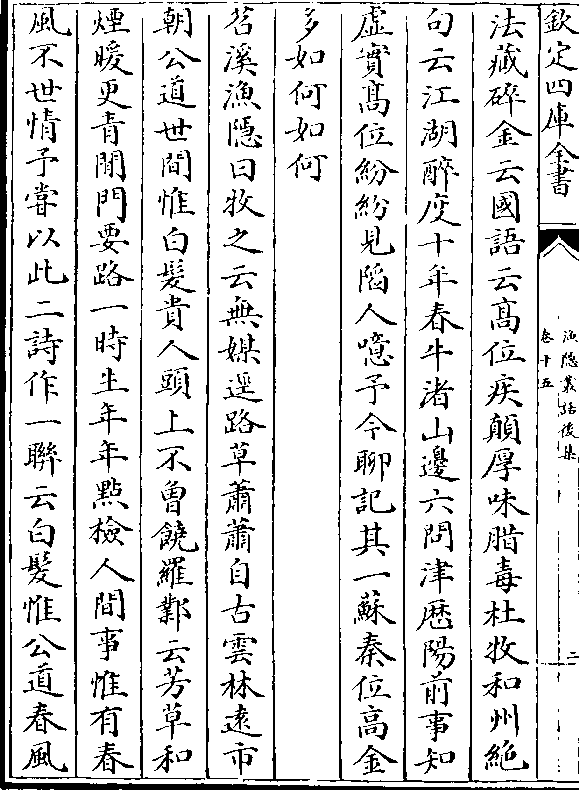 欽定四庫全書
漁隱叢話後集
卷十五
二
法藏碎金云國語云髙位疾顛厚味腊毒杜牧和州絶
句云江湖醉度十年春牛渚山邊六問津歴陽前事知
虛實髙位紛紛見陷人噫予今聊記其一蘇秦位高金
多如何如何
苕溪漁隱曰牧之云無媒逕路草蕭蕭自古雲林遠市
朝公道世間惟白髮貴人頭上不曾饒羅鄴云芳草和
煙暖更青閒門要路一時生年年點檢人間事惟有春
風不世情予嘗以此二詩作一聯云白髮惟公道春風